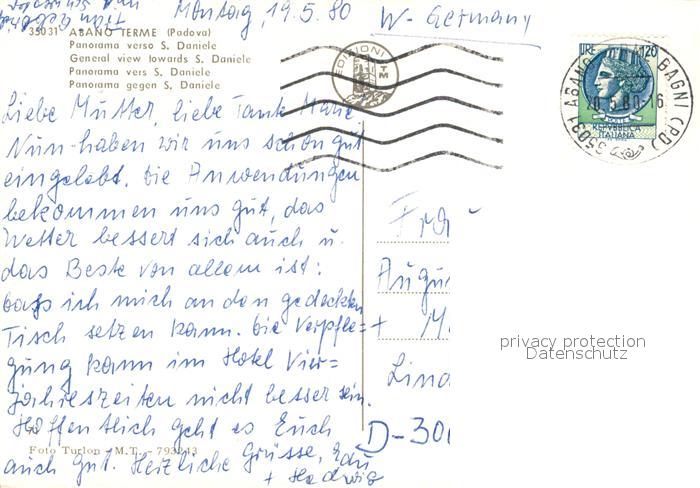 Montag, 19.5.80 W-Germany
35031 ABANO TERME (Padova)
Panorama verso S. Daniele
General view towards S. Daniele
Panorama vers S. Daniele
Panorama gegen S. Daniele
EDIZIONI TM
LIRE 120
REPVBBLICA ITALIANA
35031 ABANO BAGNI (PD)
20.5.80-16
Liebe Mutter, liebe Tante Marie
Nun haben wir uns schon gut
eingelebt. Die Anwendungen
bekommen uns gut, das
Wetter bessert sich auch u.
das Beste von allem ist:
dass ich mich an den gedeckten
Tisch setzen kann. Die Verpfle-
gung kann im Hotel Vier=
jahreszeiten nicht besser sein.
Hoffentlich geht es Euch
auch gut. Herzliche Grüsse, Edu
+ Hedwig
Foto Turlon (M.T. - 793343
Frau
Augu
+ M
Lind
D-30
privacy protection
Datenschutz